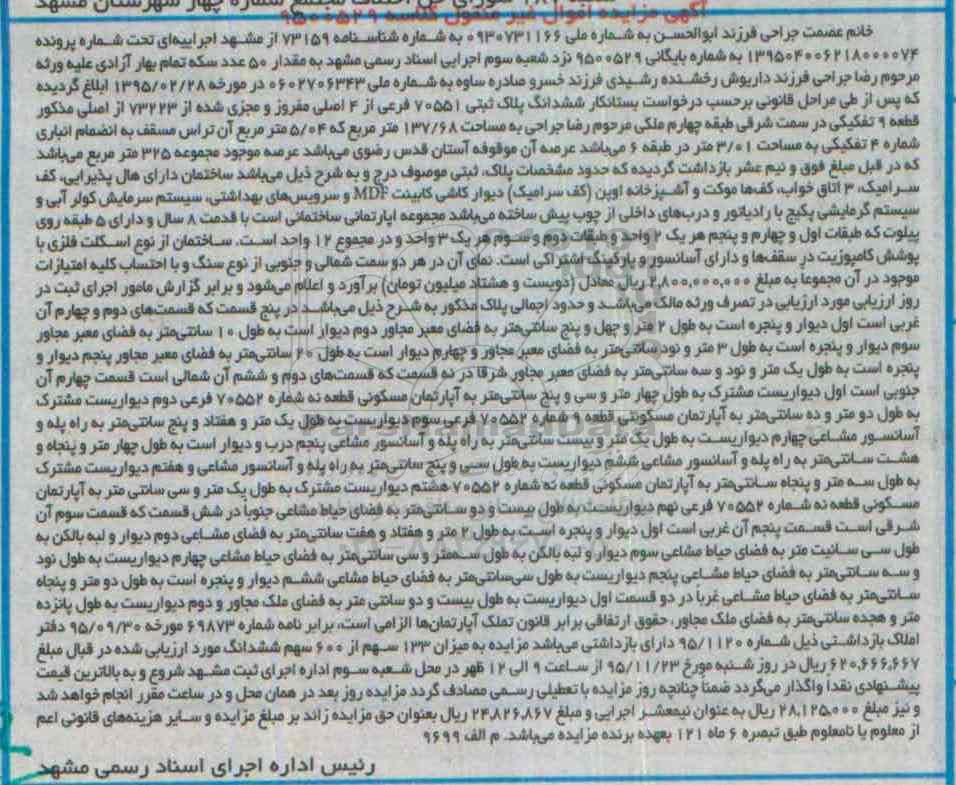 آگهی مزایده اموال غیر منقول کلاسه ۹۵۰۰۵۲۹
خانم عصمت جراحی فرزند ابوالحسن به شماره ملی ۰۹۳۰۷۳۱۱۶۶ به شماره شناسنامه ۷۳۱۵۹ از مشهد اجراییه‌ای تحت شماره پرونده
۱۳۹۵۰۴۰۰۶۲۱۸۰۰۰۰۷۴ به شماره بایگانی ۹۵۰۰۵۲۹ نزد شعبه سوم اجرایی اسناد رسمی مشهد به مقدار ۵۰ عدد سکه تمام بهار آزادی علیه ورثه
مرحوم رضا جراحی فرزند داریوش رخشنده رشیدی فرزند خسرو صادره ساوه به شماره ملی ۰۶۰۲۷۰۶۳۴۳ در مورخه ۱۳۹۵/۰۲/۲۸ ابلاغ گردیده
که پس از طی مراحل قانونی برحسب درخواست بستانکار ششدانگ پلاک ثبتی ۷۰۵۵۱ فرعی از ۴ اصلی مفروز و مجزی شده از ۷۳۲۲۳ از اصلی مذکور
قطعه ۹ تفکیکی در سمت شرقی طبقه چهارم ملکی مرحوم رضا جراحی به مساحت ۱۳۷/۶۸ متر مربع که ۵/۰۴ متر مربع آن تراس مسقف به انضمام انباری
شماره ۴ تفکیکی به مساحت ۳/۰۱ متر در طبقه ۶ می‌باشد عرصه آن موقوفه آستان قدس رضوی می‌باشد عرصه موجود مجموعه ۳۲۵ متر مربع می‌باشد
که در قبل مبلغ فوق و نیم عشر بازداشت گردیده که حدود مشخصات پلاک، ثبتی موصوف درج و به شرح ذیل می‌باشد ساختمان دارای هال پذیرایی، کف
سرامیک، ۳ اتاق خواب، کف‌ها موکت و آشپزخانه اوپن (کف سرامیک) دیوار کاشی کابینت MDF و سرویس‌های بهداشتی، سیستم سرمایش کولر آبی و
سیستم گرمایشی پکیج با رادیاتور و درب‌های داخلی از چوب پیش ساخته می‌باشد مجموعه آپارتمانی ساختمانی است با قدمت ۸ سال و دارای ۵ طبقه روی
پیلوت که طبقات اول و چهارم و پنجم هر یک ۲ واحد و طبقات دوم و سوم هر یک ۳ واحد و در مجموع ۱۲ واحد است. ساختمان از نوع اسکلت فلزی با
پوشش کامپوزیت در سقف‌ها و دارای آسانسور و پارکینگ اشتراکی است. نمای آن در هر دو سمت شمالی و جنوبی از نوع سنگ و با احتساب کلیه امتیازات
موجود در آن مجموعاً به مبلغ ۲,۸۰۰,۰۰۰,۰۰۰ ریال معادل (دویست و هشتاد میلیون تومان) برآورد و اعلام می‌شود و برابر گزارش مامور اجرای ثبت در
روز ارزیابی مورد ارزیابی در تصرف ورثه مالک می‌باشد و حدود اجمالی پلاک مذکور به شرح ذیل می‌باشد در پنج قسمت که قسمت‌های دوم و چهارم آن
غربی است اول دیوار و پنجره است به طول ۲ متر و چهل و پنج سانتی‌متر به فضای معبر مجاور دوم دیوار است به طول ۱۰ سانتی‌متر به فضای معبر مجاور
سوم دیوار و پنجره است به طول ۳ متر و نود سانتی‌متر به فضای معبر مجاور و چهارم دیوار است به طول ۲۰ سانتی‌متر به فضای معبر مجاور پنجم دیوار و
پنجره است به طول یک متر و نود و سه سانتی‌متر به فضای معبر مجاور شرقا در نه قسمت که قسمت‌های دوم و ششم آن شمالی است قسمت چهارم آن
جنوبی است اول دیواریست مشترک به طول چهار متر و سی و پنج سانتی‌متر به آپارتمان مسکونی قطعه نه شماره ۷۰۵۵۲ فرعی دوم دیواریست مشترک
به طول دو متر و ده سانتی‌متر به آپارتمان مسکونی قطعه ۹ شماره ۷۰۵۵۲ فرعی سوم دیواریست به طول یک متر و هفتاد و پنج سانتی‌متر به راه پله و
آسانسور مشاعی چهارم دیواریست به طول یک متر و بیست سانتی‌متر به راه پله و آسانسور مشاعی پنجم درب و دیوار است به طول چهار متر و پنجاه و
هشت سانتی‌متر به راه پله و آسانسور مشاعی ششم دیواریست به طول سی و پنج سانتی‌متر به راه پله و آسانسور مشاعی و هفتم دیواریست مشترک
به طول سه متر و پنجاه سانتی‌متر به آپارتمان مسکونی قطعه نه شماره ۷۰۵۵۲ هشتم دیواریست مشترک به طول یک متر و سی سانتی متر به آپارتمان
مسکونی قطعه نه شماره ۷۰۵۵۲ فرعی نهم دیواریست به طول بیست و دو سانتی‌متر به فضای حیاط مشاعی جنوبا در شش قسمت که قسمت سوم آن
شرقی است قسمت پنجم آن غربی است اول دیوار و پنجره است به طول ۲ متر و هفتاد و هفت سانتی‌متر به فضای مشاعی دوم دیوار و لبه بالکن به
طول سی سانیت متر به فضای حیاط مشاعی سوم دیوار و لبه بالکن به طول سه‌متر و سی سانتی‌متر به فضای حیاط مشاعی چهارم دیواریست به طول نود
و سه سانتی‌متر به فضای حیاط مشاعی پنجم دیواریست به طول سی‌سانتی‌متر به فضای حیاط مشاعی ششم دیوار و پنجره است به طول دو متر و پنجاه
سانتی‌متر به فضای حیاط مشاعی غرباً در دو قسمت اول دیواریست به طول بیست و دو سانتی متر به فضای ملک مجاور و دوم دیواریست به طول پانزده
متر و هجده سانتی‌متر به فضای ملک مجاور، حقوق ارتفاقی برابر قانون تملک آپارتمان‌ها الزامی است، برابر نامه شماره ۶۹۸۷۳ مورخه ۹۵/۰۹/۳۰ دفتر
املاک بازداشتی ذیل شماره ۹۵/۱۱۲۰ دارای بازداشتی می‌باشد مزایده به میزان ۱۳۳ سهم از ۶۰۰ سهم ششدانگ مورد ارزیابی شده در قبال مبلغ
۶۲۰,۶۶۶,۶۶۷ ریال در روز شنبه مورخ ۹۵/۱۱/۲۳ از ساعت ۹ الی ۱۲ ظهر در محل شعبه سوم اداره اجرای ثبت مشهد شروع و به بالاترین قیمت
پیشنهادی نقداً واگذار می‌گردد ضمناً چنانچه روز مزایده با تعطیلی رسمی مصادف گردد مزایده روز بعد در همان محل و در ساعت مقرر انجام خواهد شد
و نیز مبلغ ۲۸,۱۲۵,۰۰۰ ریال به عنوان نیمعشر اجرایی و مبلغ ۲۴,۸۲۶,۸۶۷ ریال بعنوان حق مزایده زائد بر مبلغ مزایده و سایر هزینه‌های قانونی اعم
از معلوم یا نامعلوم طبق تبصره ۶ ماه ۱۲۱ بعهده برنده مزایده می‌باشد. م الف ۹۶۹۹
رئیس اداره اجرای اسناد رسمی مشهد